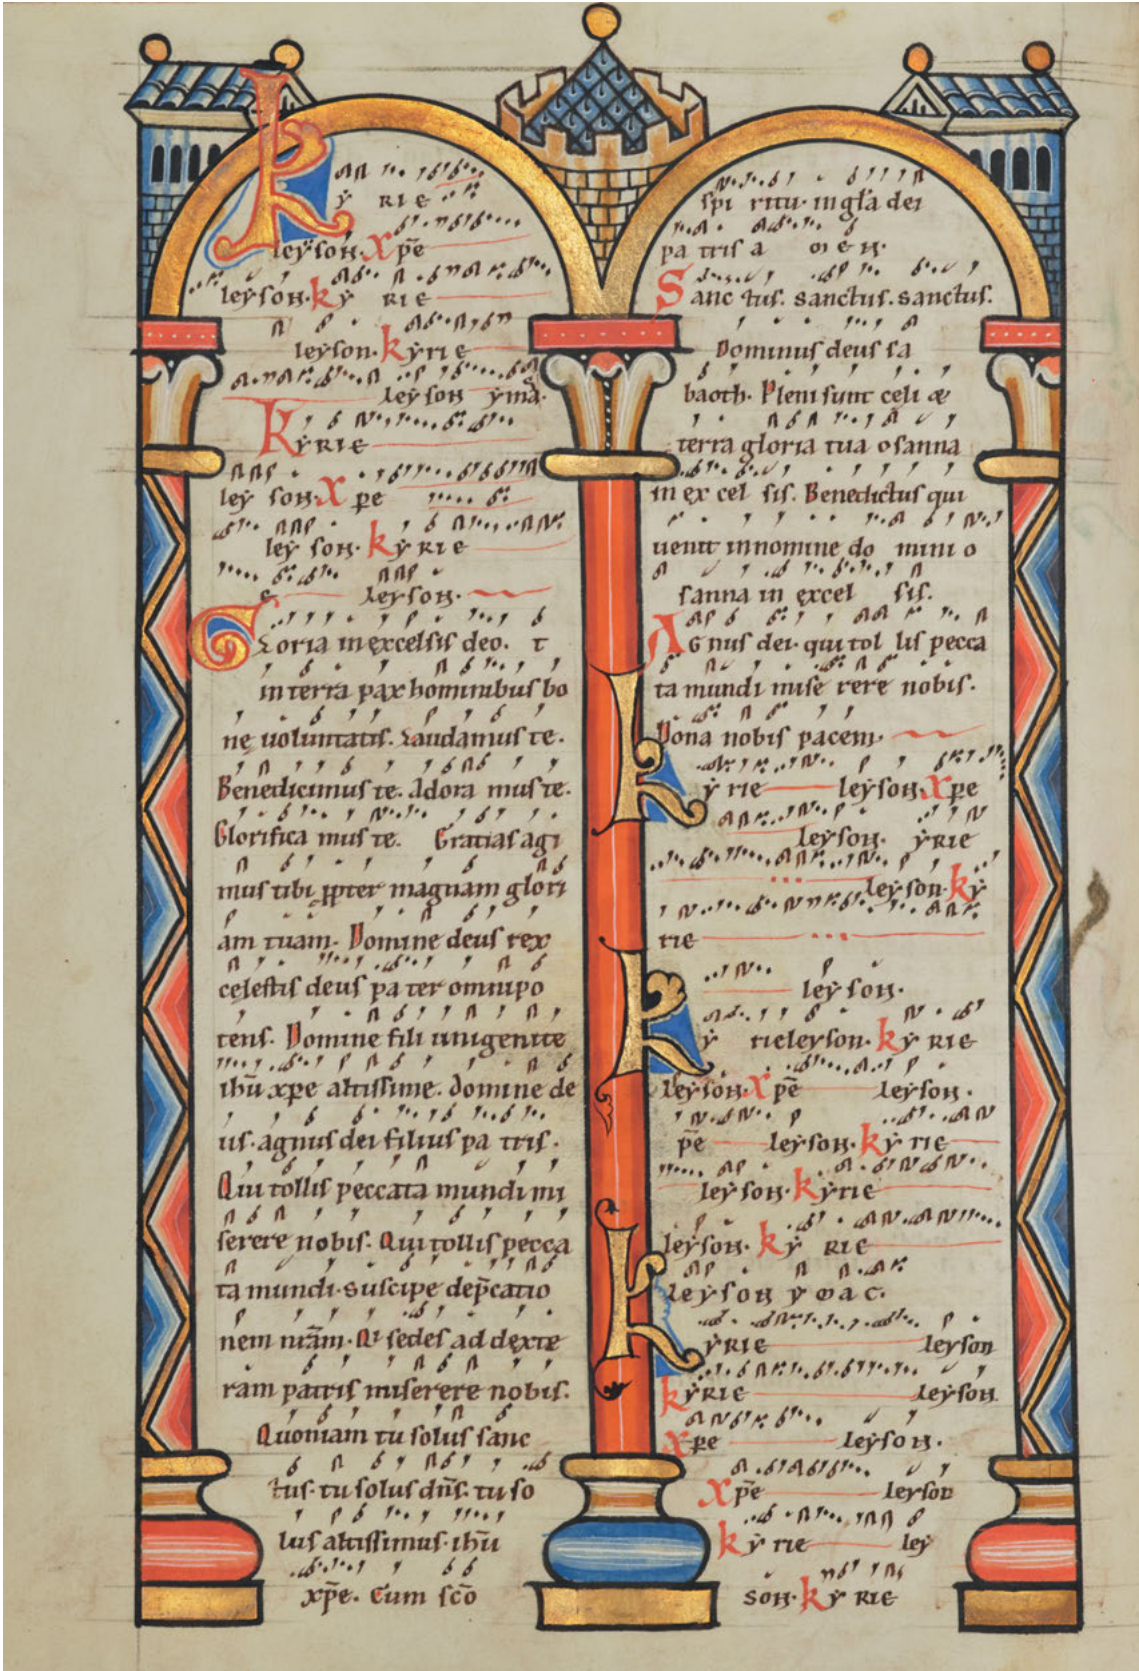 Ky RIE
leyson. xp̄e
leyson. ky RIE
leyson. kyrie
leyson ymā.
KyRIE
ley son. xpe
ley son. kyRIE
e leyson.
Gloria in excelsis deo. &
in terra pax hominibus bo
nę uoluntatis. Laudamus te.
Benedicimus te. Adora mus te.
Glorifica mus te. Gratias agi
mus tibi ꝓpter magnam glori
am tuam. Domine deus rex
cęlestis deus pa ter omnipo
tens. Domine fili unigenite
ihū xpe altissime. Domine de
us. agnus dei filius pa tris.
Qui tollis peccata mundi mi
serere nobis. Qui tollis pecca
ta mundi. suscipe dep̄catio
nem nr̄am. Qi sedes ad dexte
ram patris miserere nobis.
Quoniam tu solus sanc
tus. tu solus dn̄s. tu so
lus altissimus. ihū
xp̄e. Cum sc̄o
spi ritu. in gl̄a dei
pa tris a men.
Sanc tus. sanctus. sanctus.
Dominus deus sa
baoth. Pleni sunt celi &
terra gloria tua osanna
in ex cel sis. Benedictus qui
uenit in nomine do mini o
sanna in excel sis.
AGnus dei. qui tol lis pecca
ta mundi mise rere nobis.
Dona nobis pacem.
ky rie leyson. xpe
leyson. yRIE
leyson. ky
rie
leyson.
ky rieleyson. ky RIE
leyson. xp̄e leyson.
p̄e leyson. ky rie
leyson. kyrie
leyson. ky RIE
leyson ymac.
kyRIE leyson
kyRIE leyson
xpe leyson.
xp̄e leyson
ky rie ley
son. ky RIE